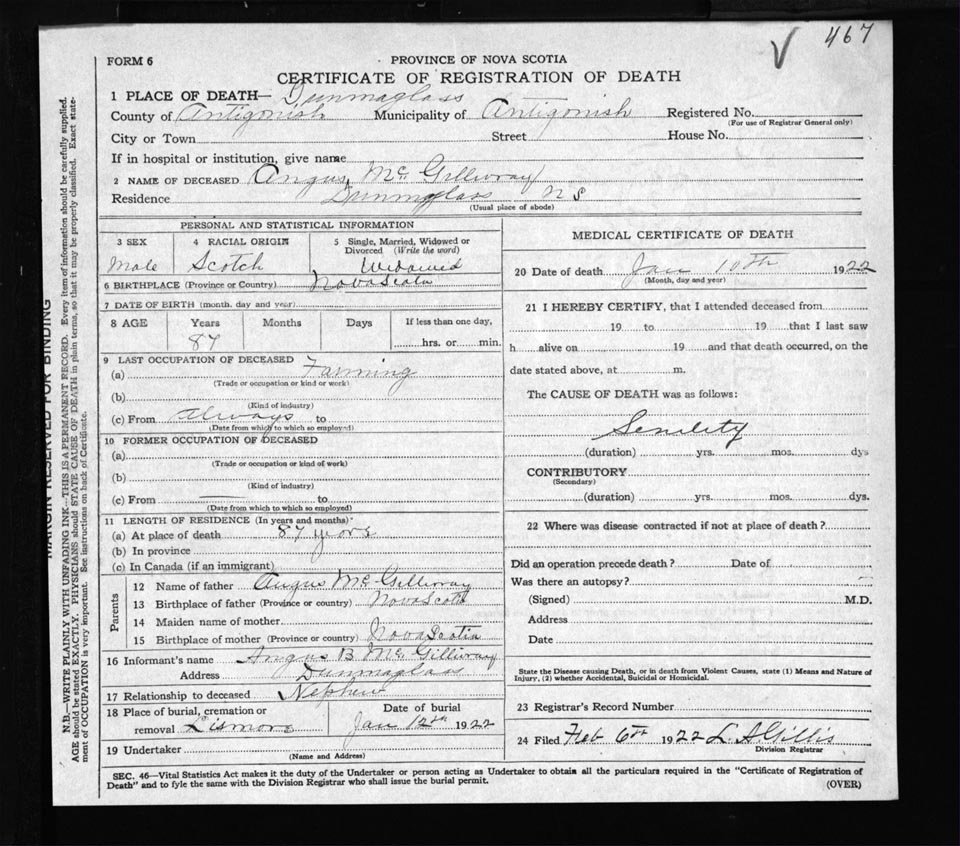 467
FORM 6
PROVINCE OF NOVA SCOTIA
CERTIFICATE OF REGISTRATION OF DEATH
1 PLACE OF DEATH— Dunmaglass
County of Antigonish Municipality of Antigonish Registered No.
(For use of Registrar General only)
City or Town Street House No.
If in hospital or institution, give name
2 NAME OF DECEASED Angus Mc Gillivray
Residence Dunmaglass N S
(Usual place of abode)
PERSONAL AND STATISTICAL INFORMATION
3 SEX 4 RACIAL ORIGIN 5 Single, Married, Widowed or
Divorced (Write the word)
Male Scotch Widowed
6 BIRTHPLACE (Province or Country) Nova Scotia
7 DATE OF BIRTH (month, day and year)
8 AGE Years Months Days If less than one day,
87 hrs. or min.
9 LAST OCCUPATION OF DECEASED
(a) Farming
(Trade or occupation or kind or work)
(b)
(Kind of industry)
(c) From always to
(Date from which to which so employed)
10 FORMER OCCUPATION OF DECEASED
(a)
(Trade or occupation or kind of work)
(b)
(Kind of industry)
(c) From — to
(Date from which to which so employed)
11 LENGTH OF RESIDENCE (In years and months)
(a) At place of death 87 years
(b) In province
(c) In Canada (if an immigrant)
Parents
12 Name of father Angus Mc Gillivray
13 Birthplace of father (Province or country) Nova Scotia
14 Maiden name of mother
15 Birthplace of mother (Province or country) Nova Scotia
16 Informant's name Angus B Mc Gillivray
Address Dunmaglass
17 Relationship to deceased Nephew
18 Place of burial, cremation or Date of burial
removal Lismore Jan 12th 1922
19 Undertaker
(Name and Address)
MEDICAL CERTIFICATE OF DEATH
20 Date of death Jan 10th 1922
(Month, day and year)
21 I HEREBY CERTIFY, that I attended deceased from
19 to 19 that I last saw
h alive on 19 and that death occurred, on the
date stated above, at m.
The CAUSE OF DEATH was as follows:
Senility
(duration) yrs. mos. dys
CONTRIBUTORY
(Secondary)
(duration) yrs. mos. dys.
22 Where was disease contracted if not at place of death?
Did an operation precede death? Date of
Was there an autopsy?
(Signed) M.D.
Address
Date
State the Disease causing Death, or in death from Violent Causes, state (1) Means and Nature of
Injury, (2) whether Accidental, Suicidal or Homicidal.
23 Registrar's Record Number
24 Filed Feb 6th 1922 L. A. Gillis
Division Registrar
SEC. 46—Vital Statistics Act makes it the duty of the Undertaker or person acting as Undertaker to obtain all the particulars required in the "Certificate of Registration of
Death" and to fyle the same with the Division Registrar who shall issue the burial permit.
(OVER)
MARGIN RESERVED FOR BINDING
N.B.—WRITE PLAINLY WITH UNFADING INK—THIS IS A PERMANENT RECORD. Every item of information should be carefully supplied.
AGE should be stated EXACTLY. PHYSICIANS should STATE CAUSE OF DEATH in plain terms, so that it may be properly classified. Exact state-
ment of OCCUPATION is very important. See instructions on back of Certificate.